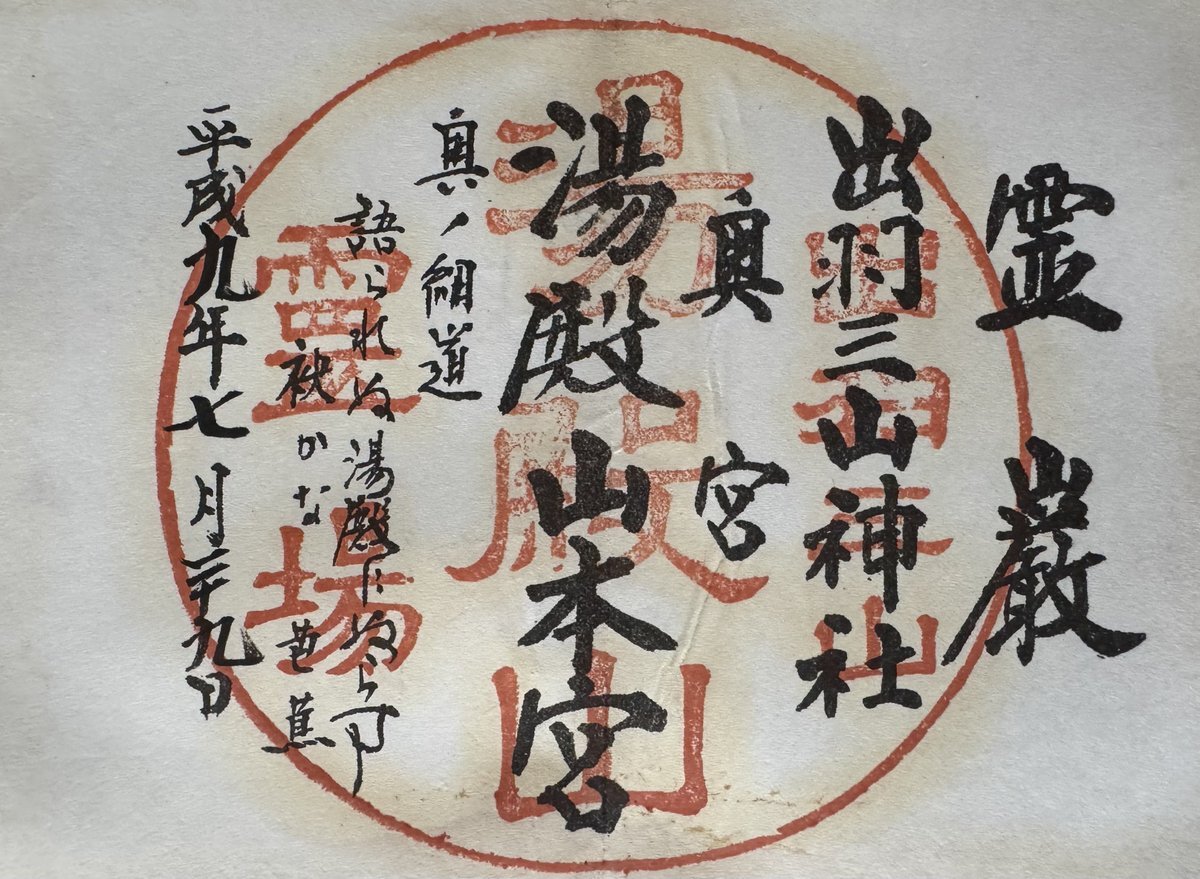 霊巌
出羽三山神社
奥宮
湯殿山本宮
奥ノ細道
語られぬ湯殿にぬらす
袂かな 芭蕉
平成九年七月二十九日
出羽三山
湯殿山
霊場